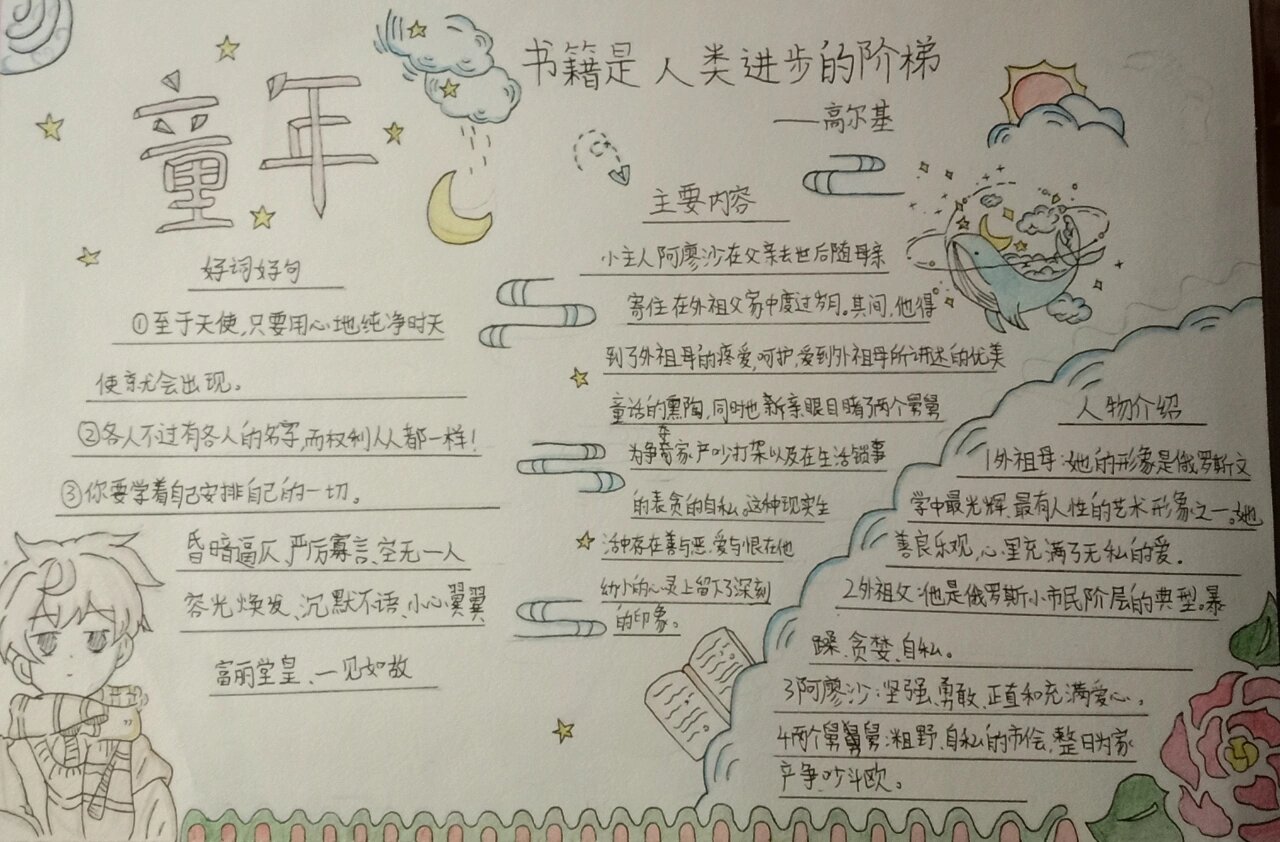 童年
书籍是人类进步的阶梯
——高尔基
好词好句
①至于天使,只要用心地纯净时天
使就会出现。
②各人不过有各人的名字,而权利人人都一样!
③你要学着自己安排自己的一切。
昏暗逼仄、严厉寡言、空无一人
容光焕发、沉默不语、小心翼翼
富丽堂皇、一见如故
主要内容
小主人阿廖沙在父亲去世后随母亲
寄住在外祖父家中度过岁月。其间,他得
到了外祖母的疼爱,呵护,爱到外祖母所讲述的优美
童话的熏陶,同时也新亲眼目睹了两个舅舅
为争夺家产吵打架以及在生活锁事
的表贪的自私。这种现实生
活中存在善与恶、爱与恨在他
幼小的心灵上留下了深刻
的印象。
人物介绍
1外祖母:她的形象是俄罗斯文
学中最光辉、最有人性的艺术形象之一。她
善良乐观,心里充满了无私的爱。
2外祖父:他是俄罗斯小市民阶层的典型。暴
躁、贪婪、自私。
3阿廖沙:坚强、勇敢、正直和充满爱心。
4两个舅舅舅:粗野、自私的市侩,整日为家
产争吵斗殴。